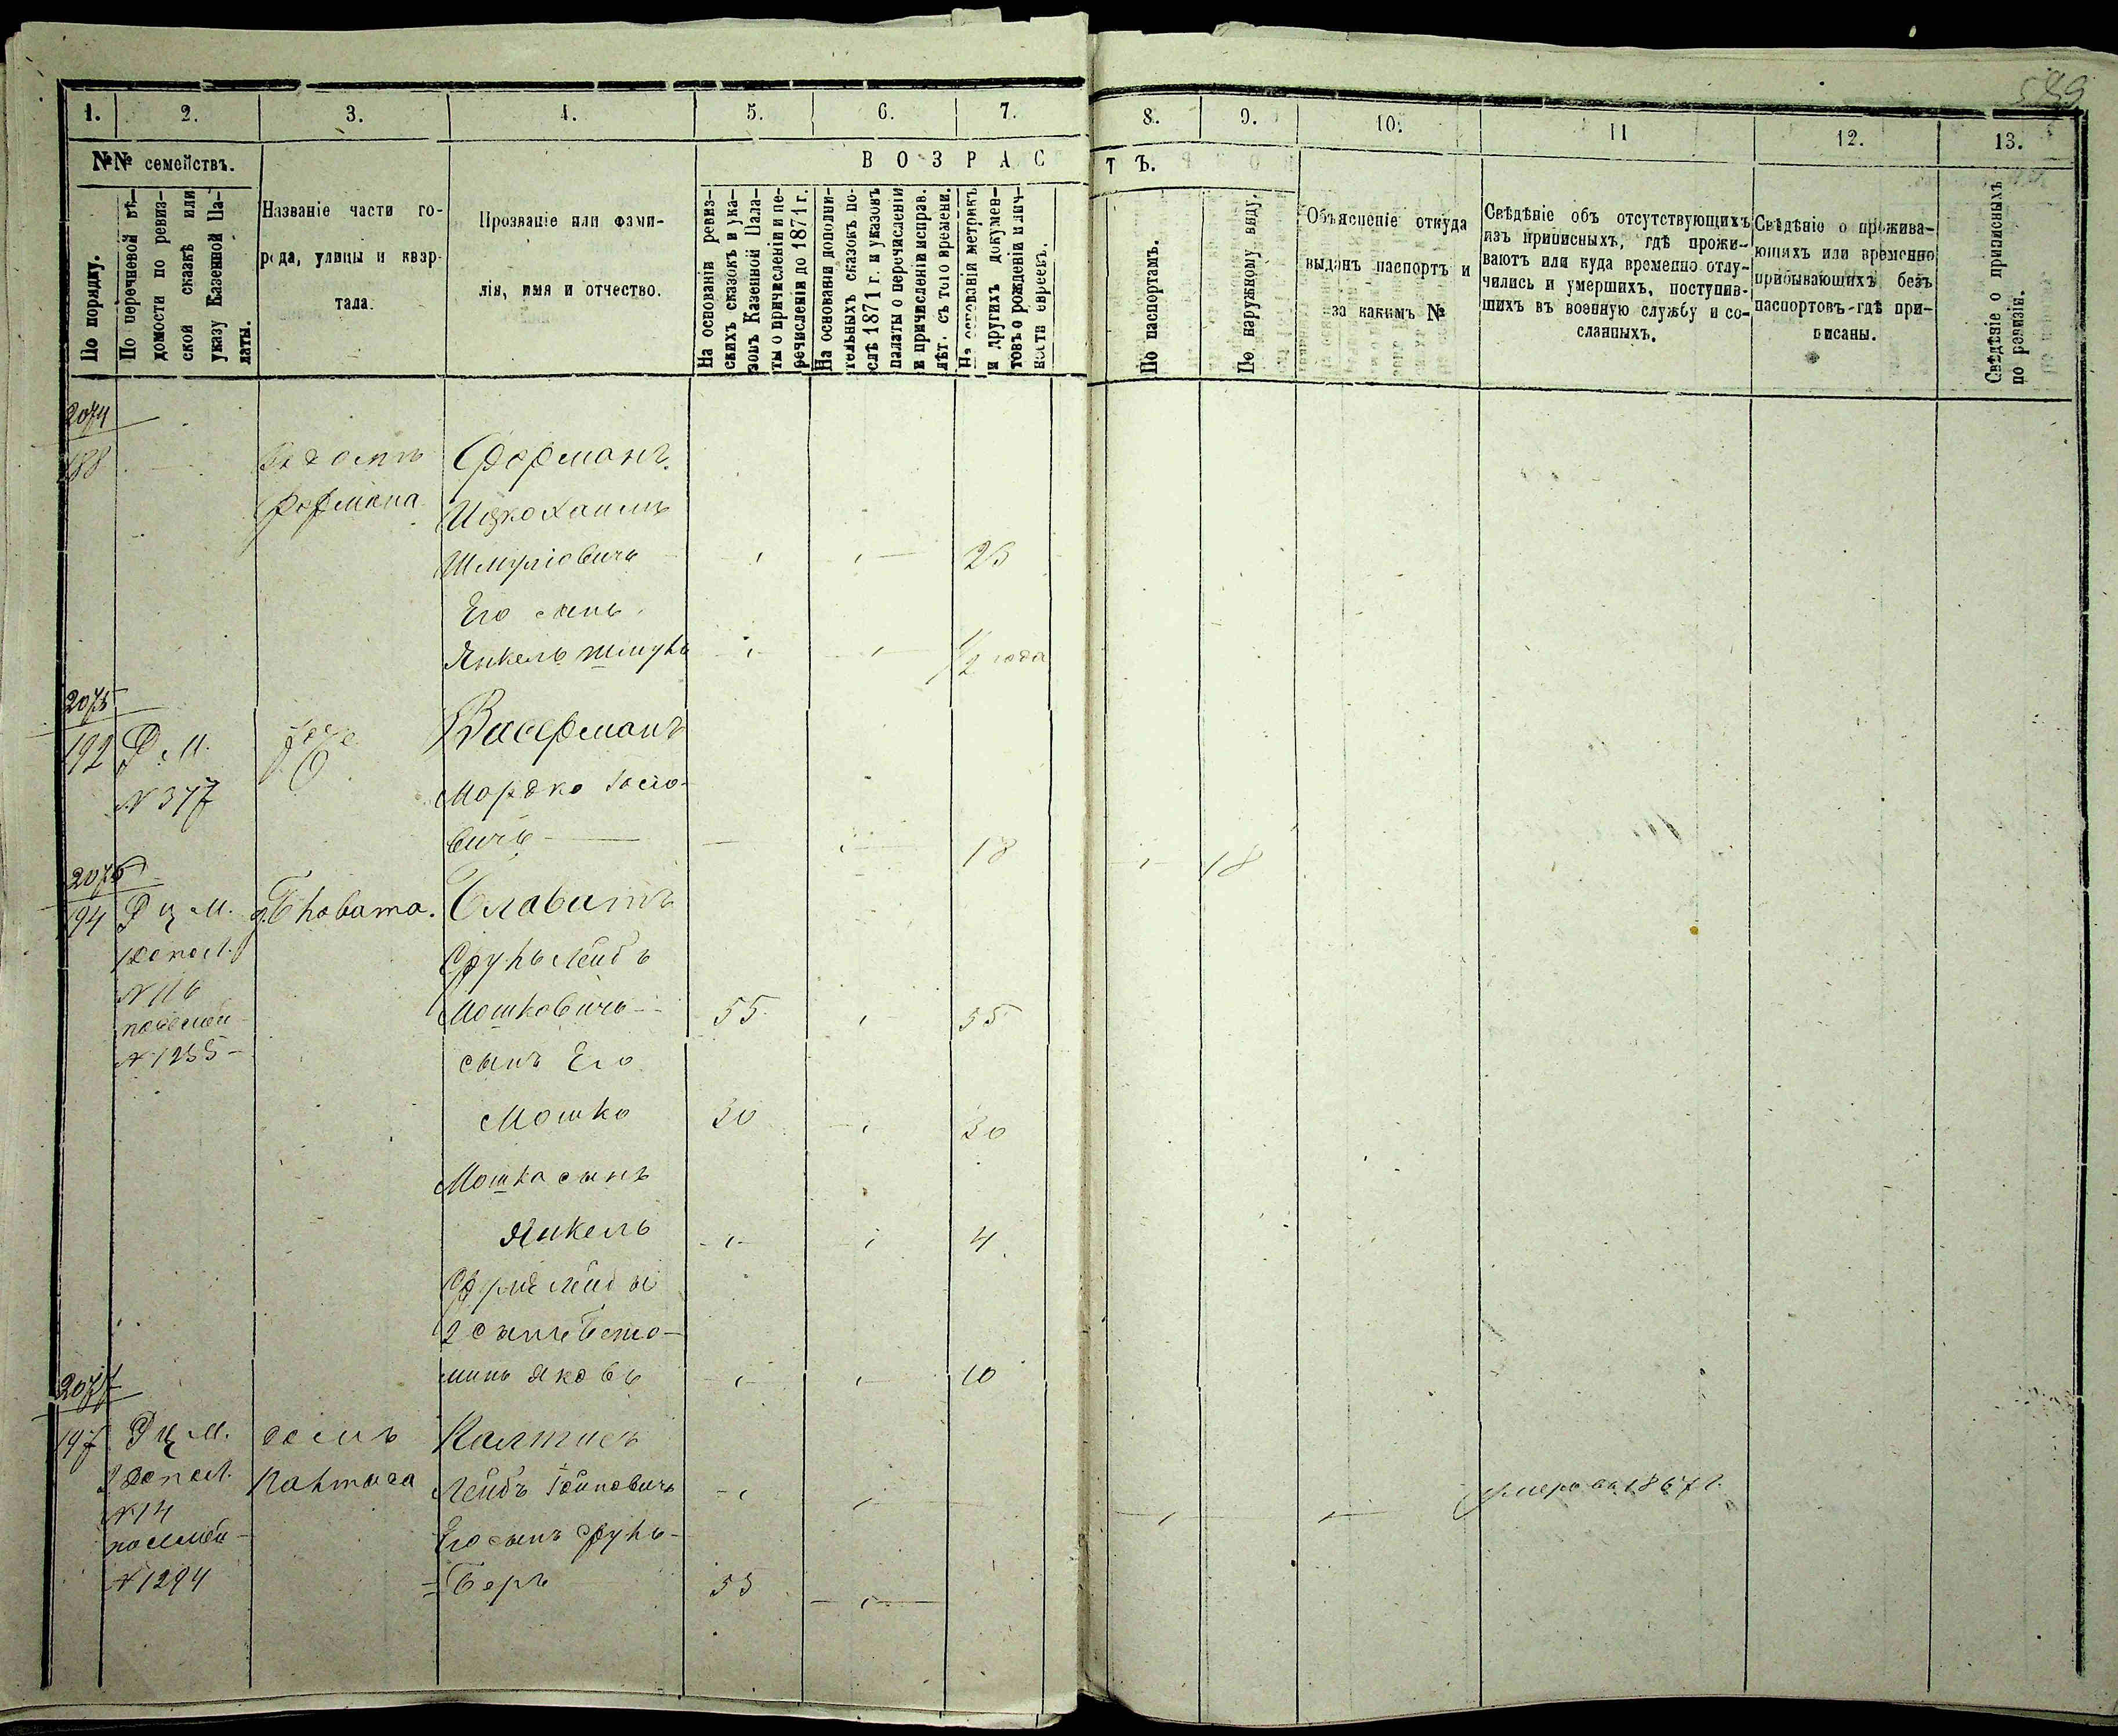 589
1. 2. 3. 4. 5. 6. 7. 8. 9. 10. 11 12. 13.
№№ семействъ.
ВОЗРАСТЪ.
По порядку.
По перечневой вѣ-
домости по ревиз-
ской сказкѣ или
указу Казенной Па-
латы.
Названіе части го-
рода, улицы и квар-
тала.
Прозваніе или фами-
лія, имя и отчество.
На основаніи ревиз-
скихъ сказокъ и ука-
зовъ Казенной Пала-
ты о причисленіи и пе-
речисленіи до 1871 г.
На основаніи дополни-
тельныхъ сказокъ по-
слѣ 1871 г. и указовъ
палаты о перечисленіи
и причисленіи исправ.
лѣт. съ того времени.
На основаніи метрикъ
и другихъ докумен-
товъ о рожденіи и лич-
ности евреевъ.
По паспортамъ.
По наружному виду.
Объясненіе откуда
выданъ паспортъ и
за какимъ №
Свѣдѣніе объ отсутствующихъ
изъ приписныхъ, гдѣ прожи-
ваютъ или куда временно отлу-
чились и умершихъ, поступив-
шихъ въ военную службу и со-
сланныхъ.
Свѣдѣніе о прожива-
ющихъ или временно
прибывающихъ безъ
паспортовъ-гдѣ при-
писаны.
Свѣдѣніе о приписныхъ
по ревизіи.
2074
188 Форманъ
Формана Ицко Хаимъ
Шмуліовичь 23
Его сынъ
Янкель Шмуль 1/2 года
2075
192 Р. М. Васерманъ
N 377 Мордко Іосіо-
вичь 18 18
2076
194 Р ц М. Словатъ
1 допол. Сруль Лейбъ
N 116
Мошковичь 55 55
посемей
N 1255 сынъ Его
Мошко 30 30
Мошка сынъ
Янкель 4
Сруля Лейбы
2 сынъ Беніо-
минъ Яковъ 10
2077
197 Р ц М. домъ Калтисъ
2 допол. Лейбъ умеръ въ 1867 г.
N 14
посемей Его сынъ Сруль-
N 1294 Беръ 53